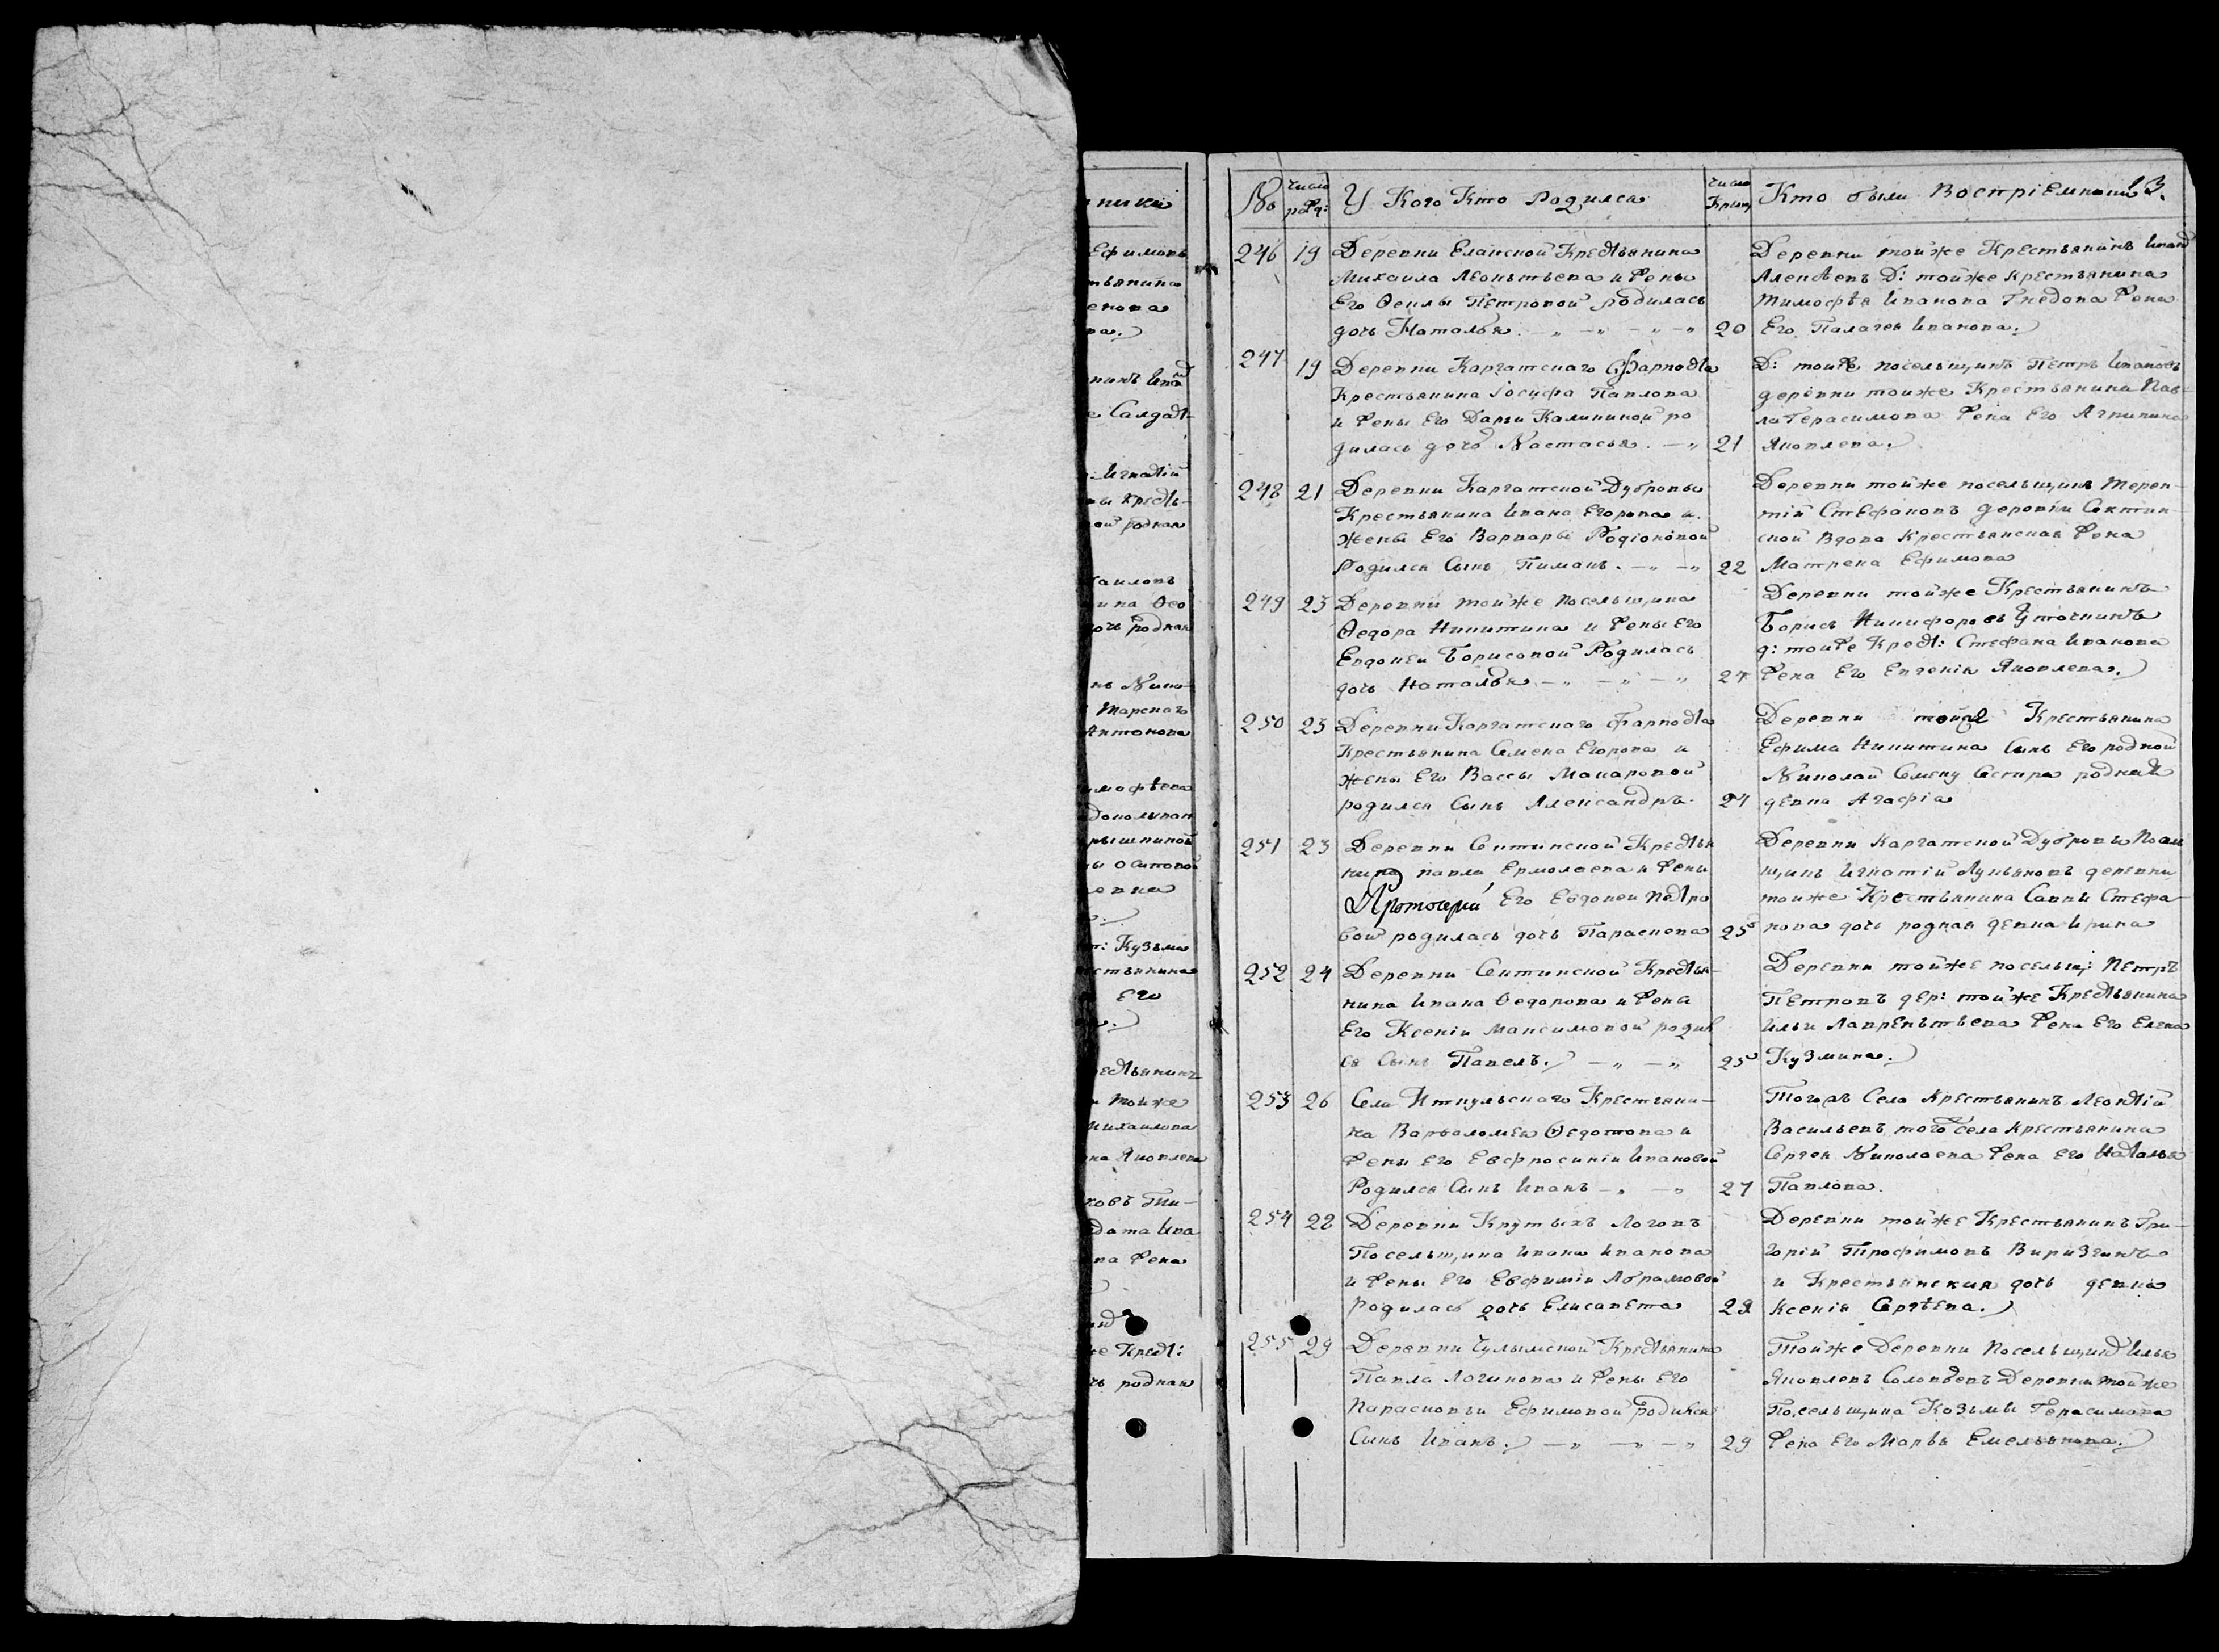 ники
Ефимовъ
тьянина
енова
ва.
нинъ Ива
е Салдат
Игнатій
ны Крестъ-
ой родная
хаиловъ
ина Ѳео
очь родная
нъ Нико-
Тарскаг
Антонова
имофѣева
рышкиной
ны Осиповой
девка
т: Кузьма
естьянина
Его
рестьянинъ
и тойже
Михаилова
на Яковлева
ковъ Ти-
дата Ива
ва Жена
же Крест:
чь родная
№ число рожд: У Кого Кто Родился число Крещ Кто были Воспріемники 13.
246 19 Деревни Еланской Крестьянина
Михаила Леонтьева и Жены
Его Ѳеклы Петровой родилась
дочь Наталья. 20
Деревни тойже Крестьянинъ Иванъ
Алексѣевъ Д: тойже крестьянина
Тимофѣя Иванова Гнедова Жена
Его Палагея Иванова.
247 19 Деревни Каргатскаго Фарпоста
Крестьянина Іосифа Павлова
и Жены Его Дарьи Калининой ро
дилась дочь Настасья. 21
Д: тойже посельщикъ Петръ Ивановъ
деревни тойже Крестьянина Пав
ла Герасимова Жена Его Агрипина
Яковлева.
248 21 Деревни Каргатской Дубровы
Крестьянина Ивана Егорова и
жены Его Варвары Родіоновой
Родился Сынъ Пиманъ. 22
Деревни тойже посельщикъ Терен-
тій Стефановъ деревни Сектин
ской Вдова Крестьянская Жена
Матрена Ефимова
249 23 Деревни тойже посельщика
Ѳедора Никитина и Жены Его
Евдокеи Борисовой Родилась
дочь Наталья 24
Деревни тойже Крестьянинъ
Борисъ Никифоровъ Уточкинъ
д: тойже Крест: Стефана Иванова
Жена Его Евгенія Яковлева.
250 23 Деревни Каргатскаго Фарпоста
Крестьянина Семена Егорова и
жены Его Вассы Макаровой
родился Сынъ Александръ. 24
Деревни тойже Крестьянина
Ефима Никитина Сынъ Его родной
Николай Семену Сестра родная
девка Агафіа
251 23 Деревни Ситинской Крестья
нина павла Ермолаева и Жены
Протоерей Его Евдокеи петро
вой родилась дочь Параскева 25
Деревни Каргатской Дубровы Посель
щикъ Игнатій Лукьяновъ деревни
тойже Крестьянина Саввы Стефа
нова дочь родная девка Ирина
252 24 Деревни Ситинской Крестья-
нина Ивана Ѳедорова и Жена
Его Ксеніи Максимовой родил
ся Сынъ Павелъ. 25
Деревни тойже посельщ: Петръ
Петровъ дер: тойже Крестьянина
Ильи Лаврентьева Жена Его Елена
Кузмина.
253 26 Села Иткульскаго Крестьяни-
на Варѳоломея Ѳедотова и
Жены Его Евфросиніи Ивановой
Родился Сынъ Иванъ 27
Тогожъ Села Крестьянинъ Леонтій
Васильевъ того Села крестьянина
Сергея Николаева Жена Его Наталья
Павлова.
254 28 Деревни Крутыхъ Логовъ
Посельщика Ивана Иванова
и Жены Его Евфиміи Абрамовой
родилась дочь Елисавета 29
Деревни тойже Крестьянинъ Гри-
горій Трофимовъ Виризгинъ
и Крестьянская дочь девка
Ксенія Сергѣева.
255 29 Деревни Чулымской Крестьянина
Павла Логинова и Жены Его
Парасковьи Ефимовой родился
Сынъ Иванъ. 29
Тойже Деревни Посельщикъ Илья
Яковлевъ Соловьевъ Деревни тойже
Посельщика Козьмы Герасимова
Жена Его Марья Емельянова.